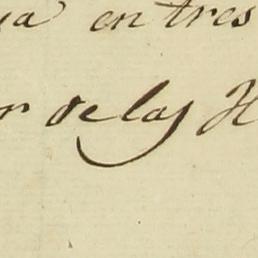 ya en tres
r de las H